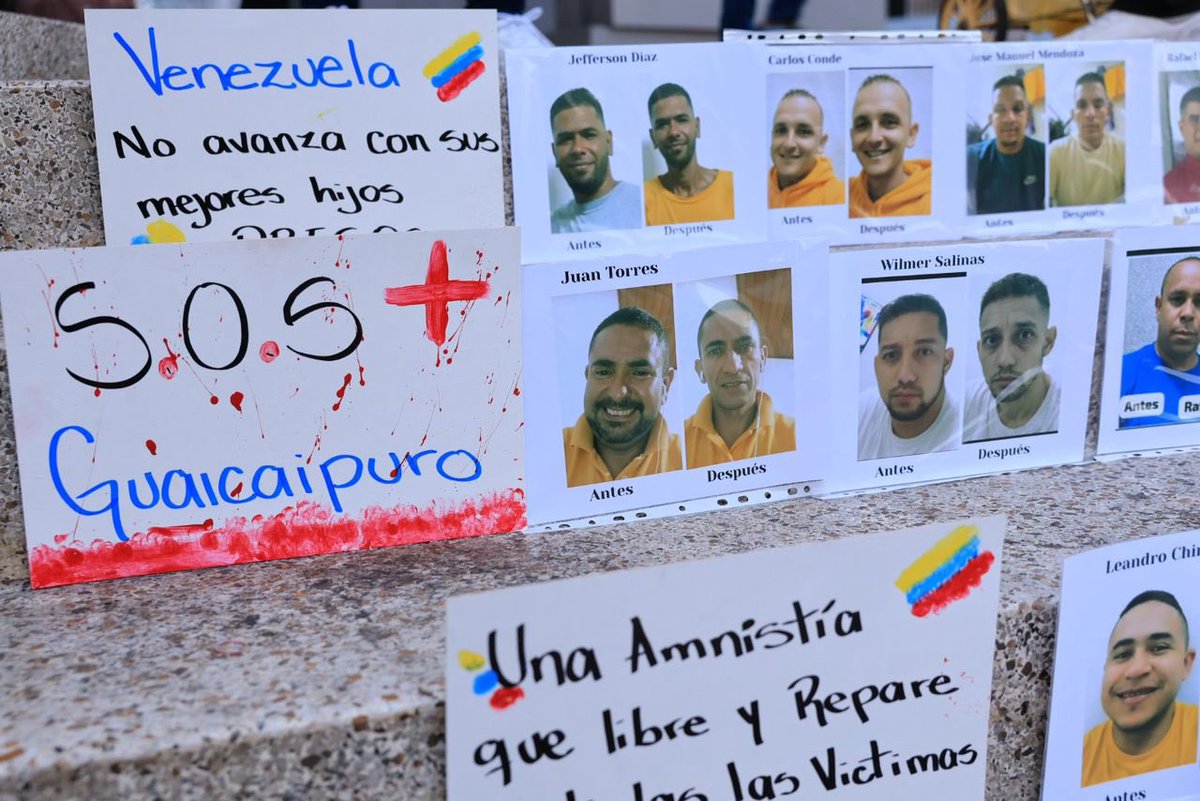 Venezuela
No avanza con sus
mejores hijos
S.O.S
Guaicaipuro
Jefferson Diaz
Antes
Después
Carlos Conde
Antes
Después
Jose Manuel Mendoza
Antes
Después
Rafael
Juan Torres
Antes
Después
Wilmer Salinas
Antes
Después
Antes
Una Amnistía
que libre y Repare
las Victimas
Leandro
Antes